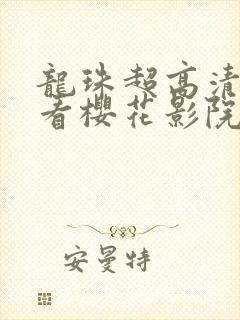 龍珠超高清
看櫻花影院
安曼特